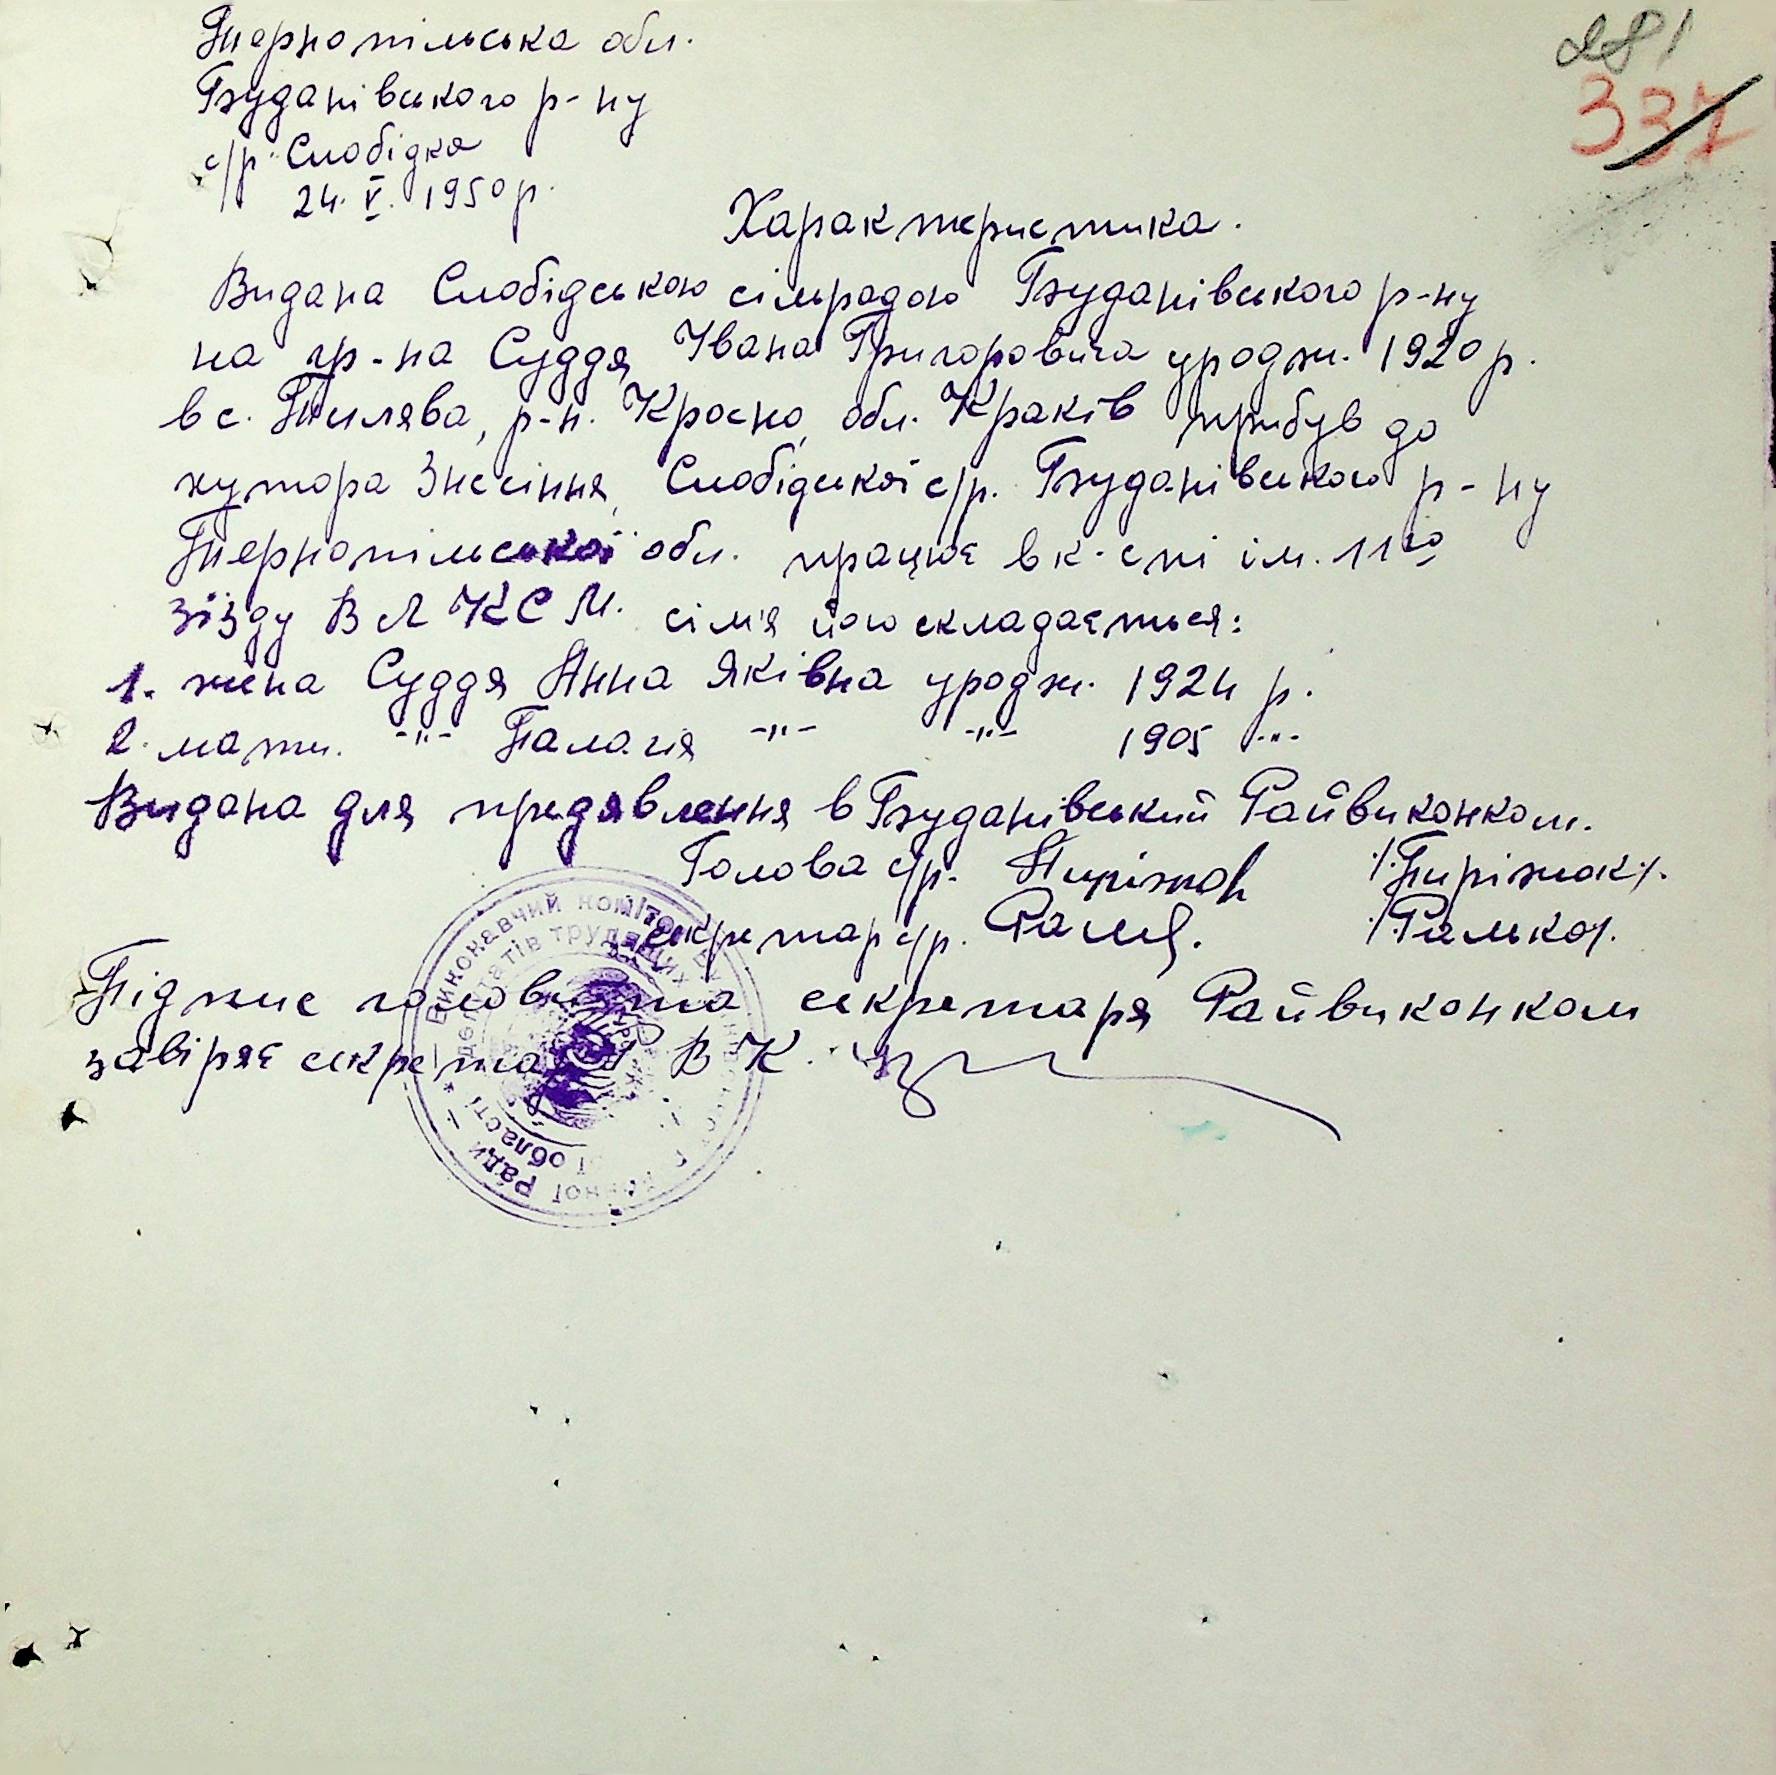 281
337
Тернопільська обл.
Буданівського р-ну
с/р. Слобідка
24. V. 1950 р.
Характеристика.
Видана Слобідською сільрадою Буданівського р-ну
на гр-на Суддя Івана Григоровича уродж. 1920 р.
в с. Тилява, р-н. Кросно, обл. Краків прибув до
хутора Знесіння, Слобідської с/р. Буданівського р-ну
Тернопільської обл. працює в к-спі ім. 11го
зїзду ВЛКСМ. сім'я його складається:
1. жена Суддя Анна Яківна уродж. 1924 р.
2. мати. -"- Палагія -"- -"- 1905 -"-
Видана для предявлення в Буданівський Райвиконком.
Голова с/р. Пиріжок /Пиріжок/.
Секретар с/р. /Ралько/.
Підпис голови та секретаря Райвиконком
завіряє секретар РВК.
Виконавчий комітет
депутатів трудящих
районної Ради
області